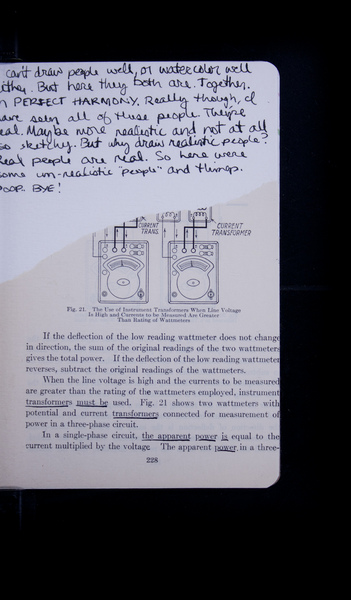 can't draw people well, or watercolor well
either. But here they both are. Together.
in PERFECT HARMONY. Really though, I
have seen all of these people. They're
real. Maybe more realistic and not at all
so sketchy. But why draw realistic people?
Real people are real. So here were
some un-realistic "people" and things.
POOP. BYE!
CURRENT
TRANS.
CURRENT
TRANSFORMER
Fig. 21. The Use of Instrument Transformers When Line Voltage
Is High and Currents to be Measured Are Greater
Than Rating of Wattmeters
If the deflection of the low reading wattmeter does not change
in direction, the sum of the original readings of the two wattmeters
gives the total power. If the deflection of the low reading wattmeter
reverses, subtract the original readings of the wattmeters.
When the line voltage is high and the currents to be measured
are greater than the rating of the wattmeters employed, instrument
transformers must be used. Fig. 21 shows two wattmeters with
potential and current transformers connected for measurement of
power in a three-phase circuit.
In a single-phase circuit, the apparent power is equal to the
current multiplied by the voltage. The apparent power in a three-
228